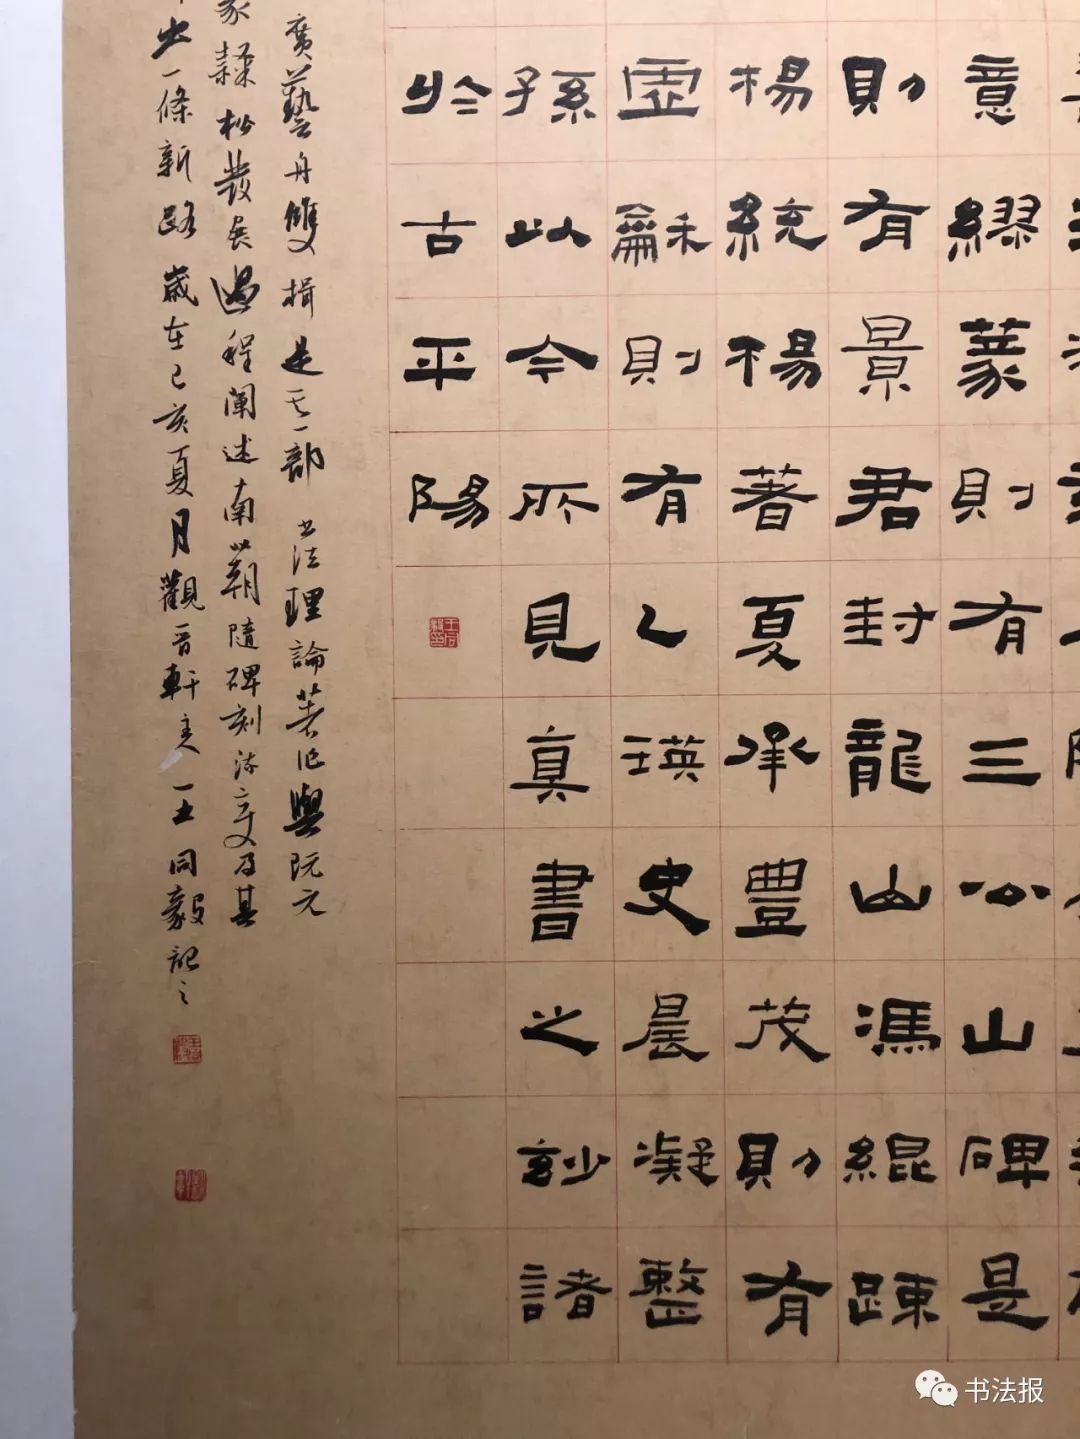 意繆篆則有三公山碑是
則有景君封龍山馮緄踈
楊統楊著夏承豊茂則有
虛龢則有乙瑛史晨凝整
孫以今所見真書之妙諸
於古平陽
廣藝舟雙揖是其一部书法理論著作與阮元
隸松發展過程阐述南北朝隨碑刻流变及其
出一條新路歲在己亥夏月觀晋軒主人王同毅記之
书法报